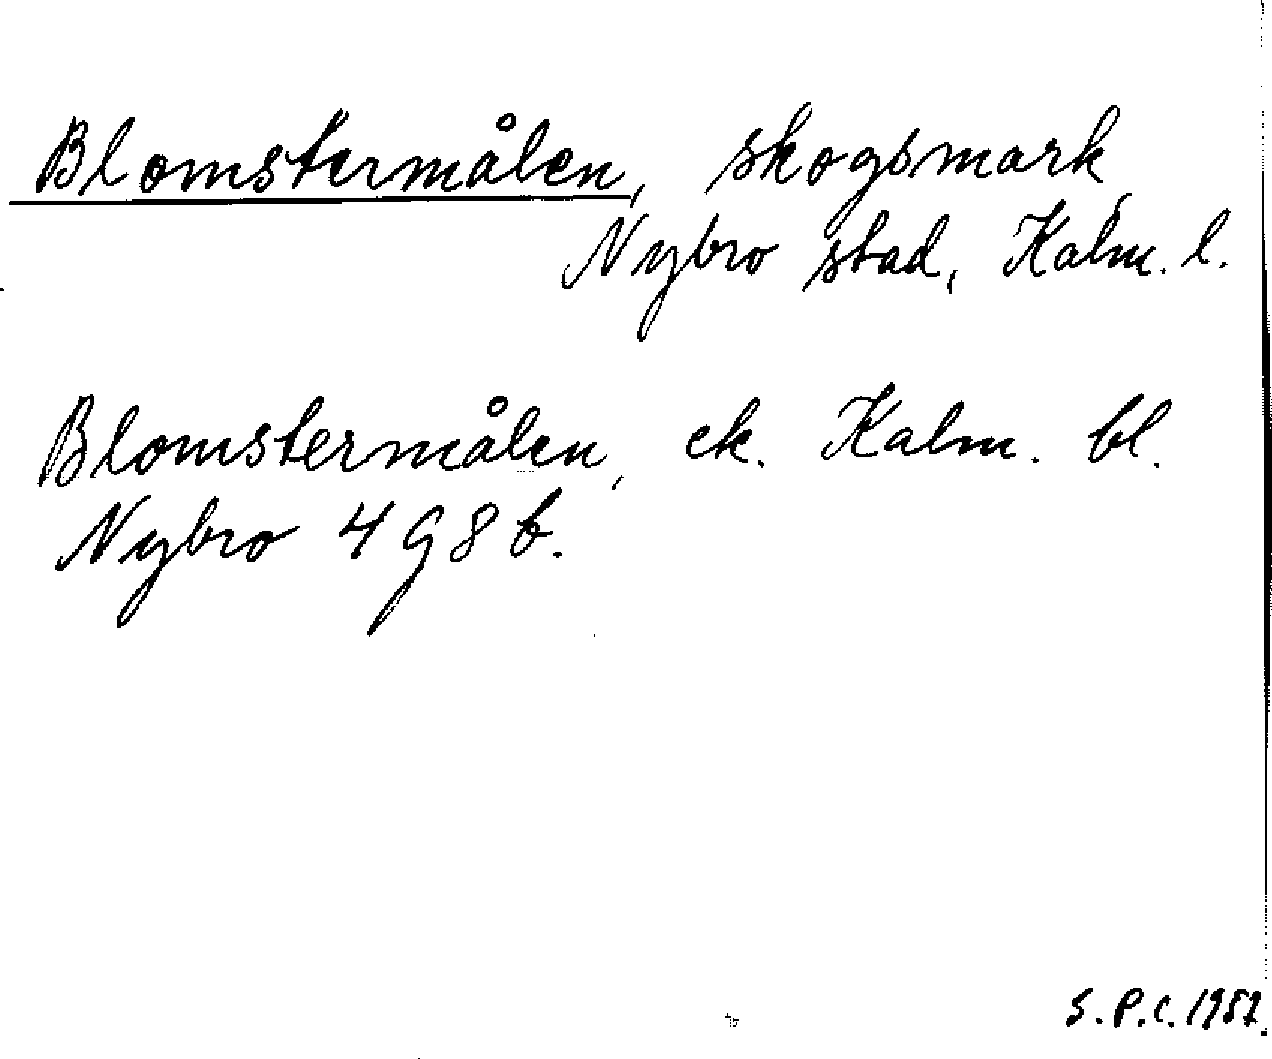 Blomstermålen, skogsmark
Nybro stad, Kalm. l.
Blomstermålen, ek. Kalm. bl.
Nybro 498 b.
S.P.C. 1957.